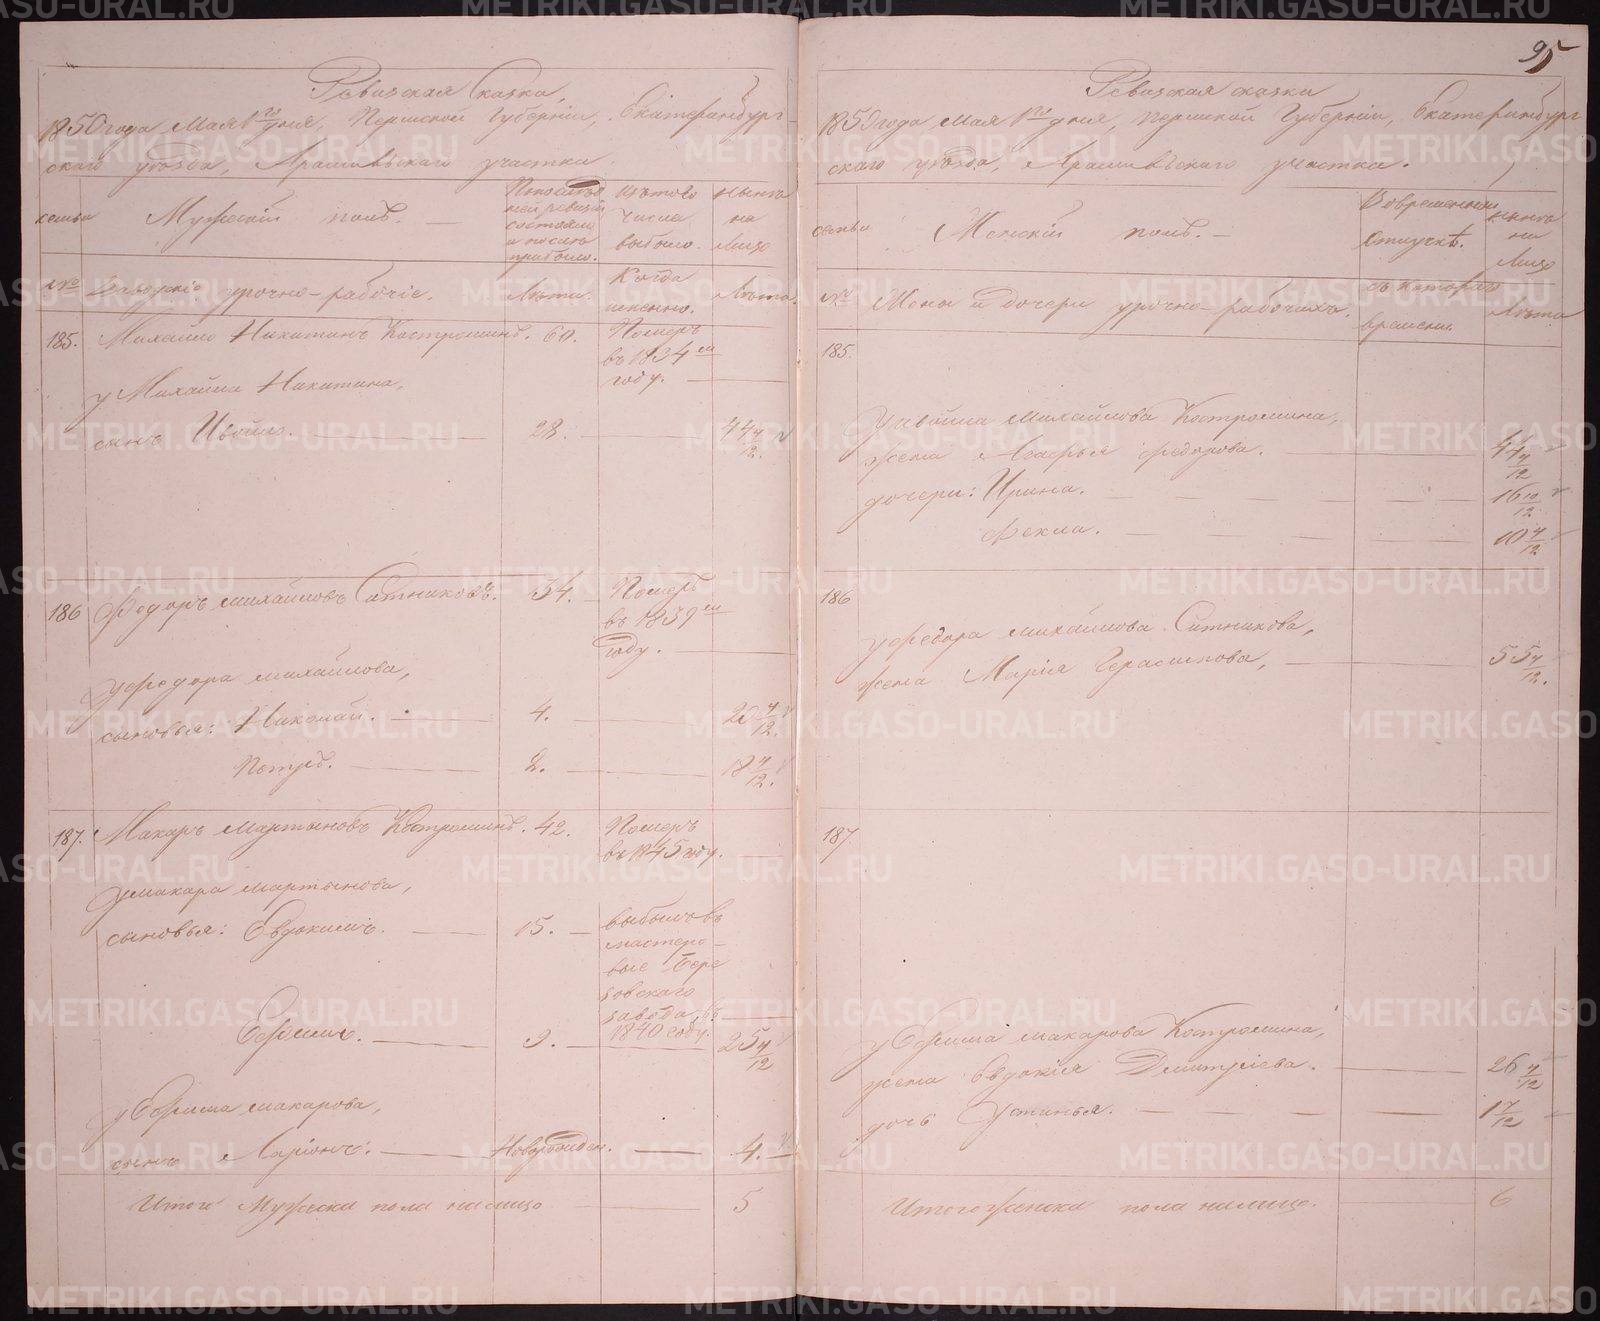 95
Ревизская Сказка,
1850 года Мая 1го дня, Пермской Губерніи, Екатеринбург-
скаго уѣзда, Арамильскаго участка.
семьи
Мужескій полъ.
По послѣд
ней ревизіи
состояло
и послѣ
прибыло.
Изъ того
числа
выбыло.
Нынѣ
на
лицо
№
Заводскіе урочно-рабочіе.
Лѣта.
Когда
именно.
Лѣта.
185. Михайло Никитинъ Костроминъ. 60. Померъ
въ 1834 мъ
году.
у Михайла Никитина,
сынъ Ивойло. 28. 44 4/12
186 Федоръ Михайловъ Ситниковъ. 34. Померъ
въ 1839 мъ
году.
у Федора Михайлова,
сыновья: Николай. 4. 20 4/12.
Петръ. 2. 18 4/12.
187. Макаръ Мартыновъ Костроминъ. 42. Померъ
въ 1845 году.
у Макара Мартынова,
сыновья: Евдокимъ. 15. выбылъ въ
мастеро-
вые Бере
зовскаго
завода, въ
1840 году.
Ефимъ. 9. 25 4/12
у Ефима Макарова,
сынъ Ларіонъ. Новорожден. 4.
Итого Мужеска пола на лицо 5
Ревизская сказка
1850 года Мая 1го дня, Пермской Губерніи, Екатеринбург
скаго уѣзда, Арамильскаго участка.
семьи
Женскій полъ.
Во временной
отлучкѣ.
Нынѣ
на
лицо
№
Жены и дочери урочно-рабочихъ.
съ котораго
времени.
Лѣта
185.
у Ивойла Михайлова Костромина,
жена Агафья Федорова. 44 4/12
дочери: Ирина. 16 10/12
Фекла. 10 4/12
186
у Федора Михайлова Ситникова,
жена Марія Герасимова, 55 4/12.
187
у Ефима Макарова Костромина,
жена Евдокія Дмитріева. 26 4/12
дочь Устинья. 1 7/12
Итого женска пола на лицо. 6
METRIKI.GASO-URAL.RU